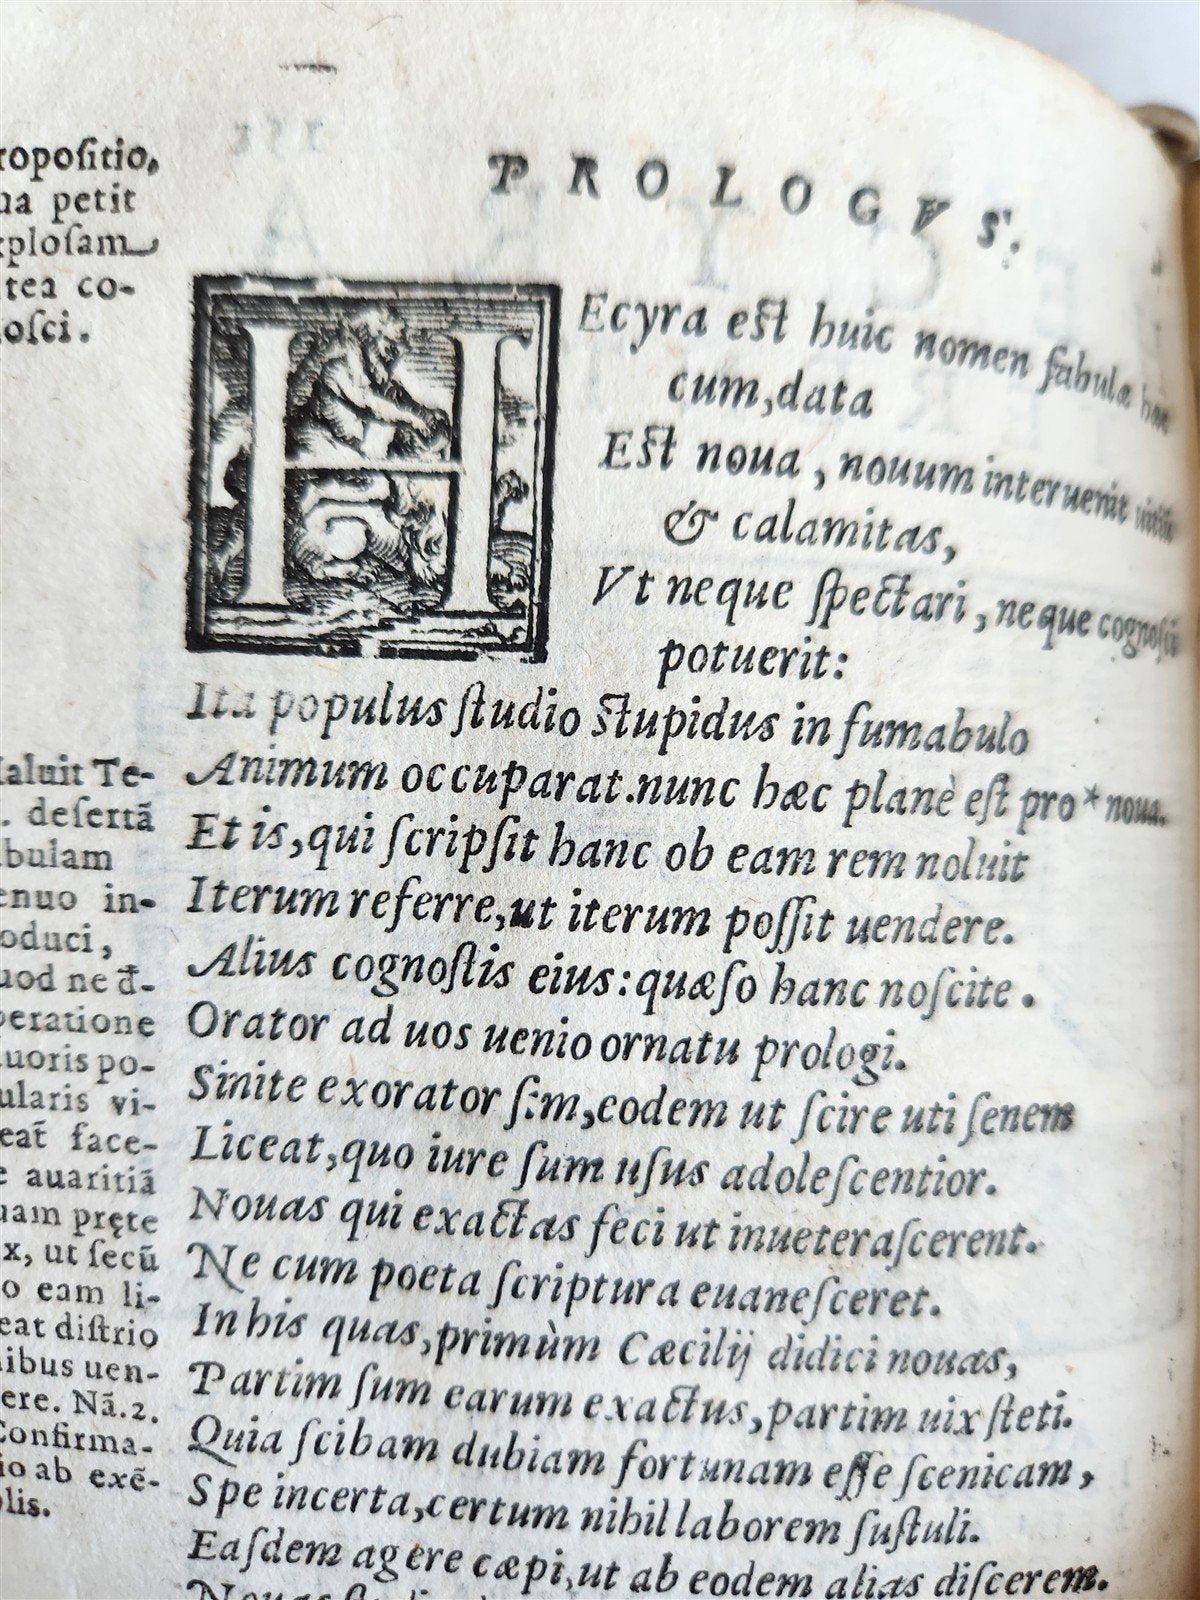 PROLOGVS.
HEcyra est huic nomen fabulæ hæc
cum, data
Est noua, nouum interuenit uitiũ
& calamitas,
Vt neque spectari, neque cognosci
potuerit:
Ita populus studio stupidus in funabulo
Animum occuparat. nunc hæc planè est pro * noua.
Et is, qui scripsit hanc ob eam rem noluit
Iterum referre, ut iterum possit uendere.
Alius cognostis eius: quæso hanc noscite.
Orator ad uos uenio ornatu prologi.
Sinite exorator sim, eodem ut scire uti senem
Liceat, quo iure sum usus adolescentior.
Nouas qui exactas feci ut inueterascerent.
Ne cum poeta scriptura euanesceret.
In his quas, primùm Cæcilij didici nouas,
Partim sum earum exactus, partim uix steti.
Quia scibam dubiam fortunam esse scenicam,
Spe incerta, certum nihil laborem sustuli.
Easdem agere cæpi, ut ab eodem alias discerem.
ropositio,
ua petit
xplosam
tea co-
nosci.
Maluit Te-
. desertã
abulam
enuo in-
oduci,
uod ne d-
peratione
uoris po-
ularis vi-
eat face-
e auaritiã
uam pręte
x, ut secũ
o eam li-
eat distrio
nibus uen-
ere. Nã. 2.
Confirma-
io ab exẽ-
plis.